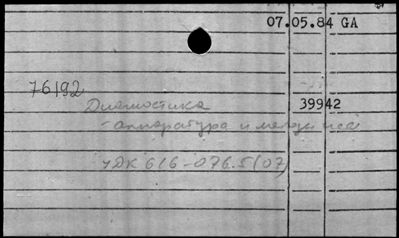 07.05.84 GA
76192
Диагностика 39942
- аппаратура и
УДК 616-076.5(07)